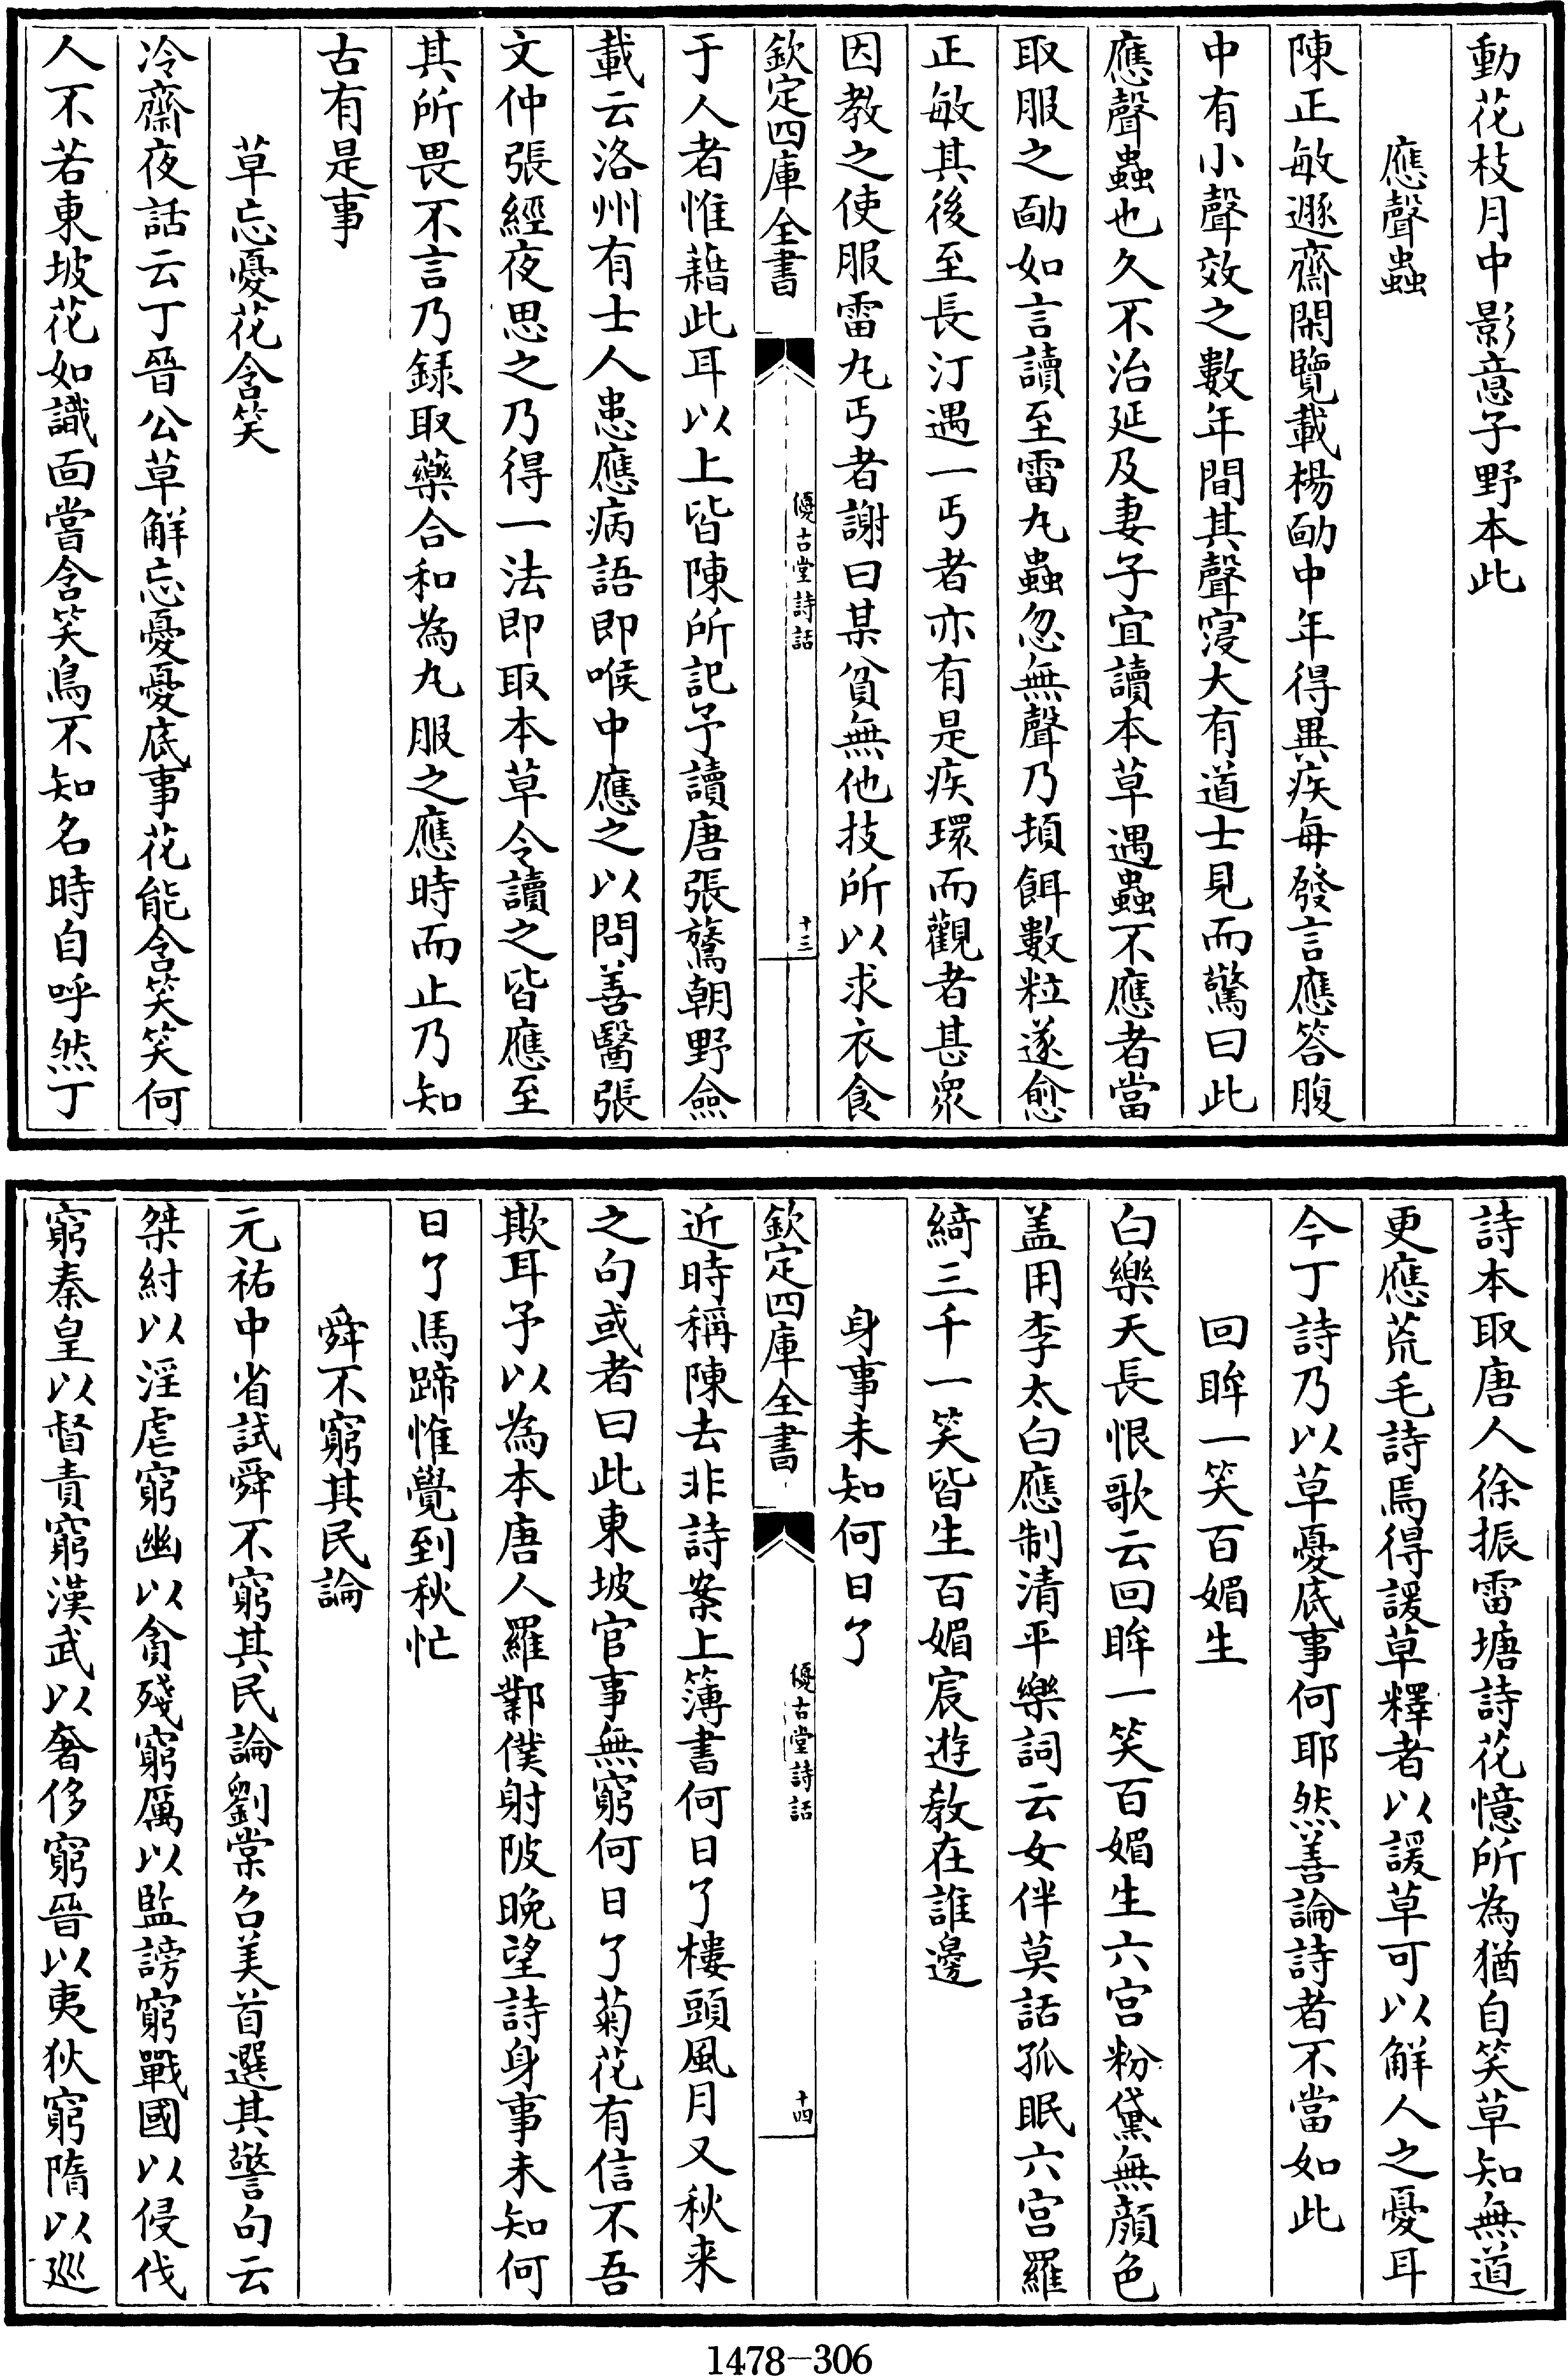 動花枝月中影意子野本此
應聲蟲
陳正敏遯齋閑覽載楊勔中年得異疾每發言應答腹
中有小聲效之數年間其聲寖大有道士見而驚曰此
應聲蟲也久不治延及妻子宜讀本草遇蟲不應者當
取服之勔如言讀至雷丸蟲忽無聲乃頓餌數粒遂愈
正敏其後至長汀遇一丐者亦有是疾環而觀者甚衆
因教之使服雷丸丐者謝曰某貧無他技所以求衣食
欽定四庫全書
優古堂詩話
十三
于人者惟藉此耳以上皆陳所記予讀唐張鷟朝野僉
載云洛州有士人患應病語即喉中應之以問善醫張
文仲張經夜思之乃得一法即取本草令讀之皆應至
其所畏不言乃録取藥合和為丸服之應時而止乃知
古有是事
草忘憂花含笑
冷齋夜話云丁晉公草解忘憂憂底事花能含笑笑何
人不若東坡花如識面嘗含笑鳥不知名時自呼然丁
詩本取唐人徐振雷塘詩花憶所為猶自笑草知無道
更應荒毛詩焉得諼草釋者以諼草可以解人之憂耳
今丁詩乃以草憂底事何耶然善論詩者不當如此
回眸一笑百媚生
白樂天長恨歌云回眸一笑百媚生六宫粉黛無顔色
盖用李太白應制清平樂詞云女伴莫話孤眠六宫羅
綺三千一笑皆生百媚宸遊教在誰邊
身事未知何日了
欽定四庫全書
優古堂詩話
十四
近時稱陳去非詩案上簿書何日了樓頭風月又秋来
之句或者曰此東坡官事無窮何日了菊花有信不吾
欺耳予以為本唐人羅鄴僕射陂晚望詩身事未知何
日了馬蹄惟覺到秋忙
舜不窮其民論
元祐中省試舜不窮其民論劉棠召美首選其警句云
桀紂以淫虐窮幽以貪殘窮厲以監謗窮戰國以侵伐
窮秦皇以督責窮漢武以奢侈窮晉以夷狄窮隋以廵
1478-306